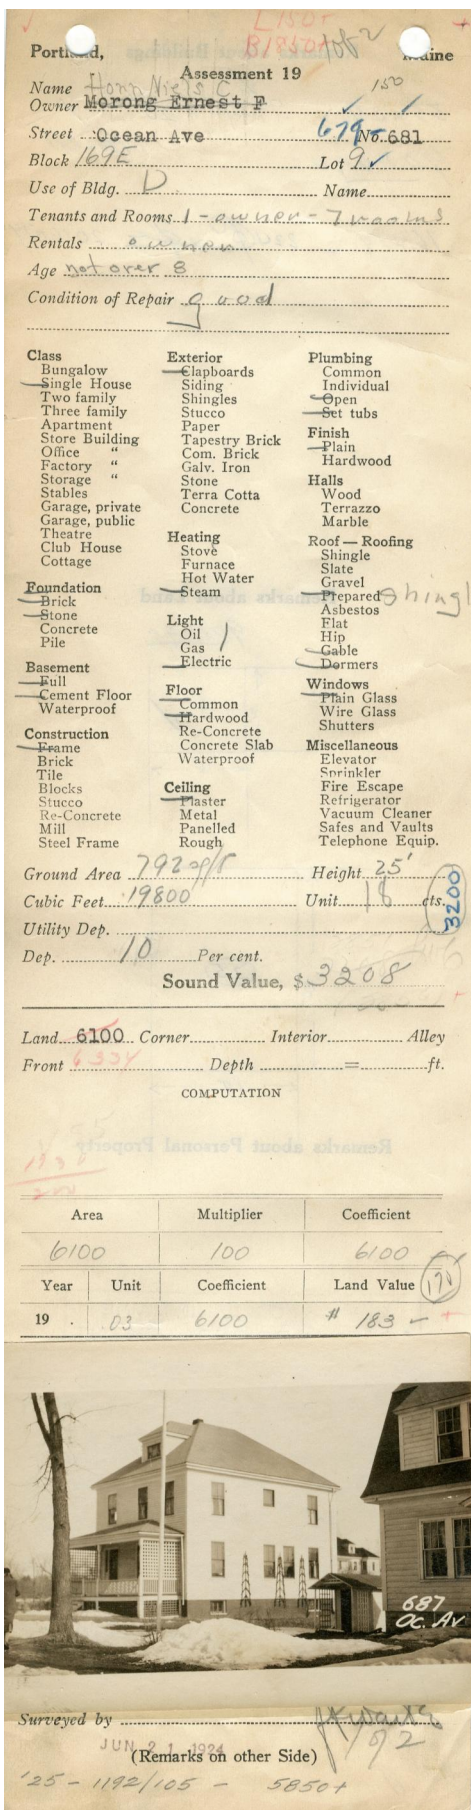 L 150+
B 1850+
Portland, Maine
Assessment 19
150
Name
Owner Morong Ernest F
Street Ocean Ave 679- No. 681
Block 169E Lot 9
Use of Bldg. D Name
Tenants and Rooms 1 - owner - 7 rooms
Rentals owner
Age not over 8
Condition of Repair good
Class
Bungalow
Single House
Two family
Three family
Apartment
Store Building
Office "
Factory "
Storage "
Stables
Garage, private
Garage, public
Theatre
Club House
Cottage
Foundation
Brick
Stone
Concrete
Pile
Basement
Full
Cement Floor
Waterproof
Construction
Frame
Brick
Tile
Blocks
Stucco
Re-Concrete
Mill
Steel Frame
Exterior
Clapboards
Siding
Shingles
Stucco
Paper
Tapestry Brick
Com. Brick
Galv. Iron
Stone
Terra Cotta
Concrete
Heating
Stove
Furnace
Hot Water
Steam
Light
Oil
Gas
Electric
Floor
Common
Hardwood
Re-Concrete
Concrete Slab
Waterproof
Ceiling
Plaster
Metal
Panelled
Rough
Plumbing
Common
Individual
Open
Set tubs
Finish
Plain
Hardwood
Halls
Wood
Terrazzo
Marble
Roof — Roofing
Shingle
Slate
Gravel
Prepared Shingl
Asbestos
Flat
Hip
Gable
Dormers
Windows
Plain Glass
Wire Glass
Shutters
Miscellaneous
Elevator
Sprinkler
Fire Escape
Refrigerator
Vacuum Cleaner
Safes and Vaults
Telephone Equip.
Ground Area 792 Height 25'
Cubic Feet 19800 Unit 18 cts.
3200
Utility Dep.
Dep. 10 Per cent.
Sound Value, $ 3208
Land 6100 Corner Interior Alley
Front Depth = ft.
COMPUTATION
Area Multiplier Coefficient
6100 100 6100
Year Unit Coefficient Land Value
19 . .03 6100 $ 183 -
687
OC. AV
Surveyed by
JUN 21 1924
(Remarks on other Side)
'25 - 1192/105 - 5850+